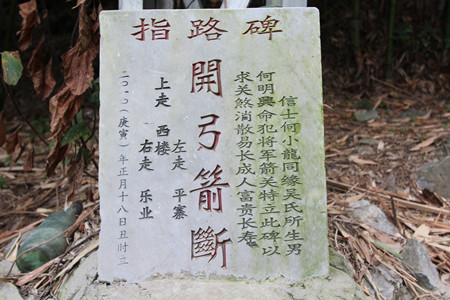 指路碑
信士何小龍同缘吴氏所生男
何明興命犯将軍箭关特立此碑以
求关煞消散易长成人富贵长寿
開弓箭斷
左走 平寨
上走 西楼
右走 乐业
二〇一〇(庚寅)年正月十八日丑时立